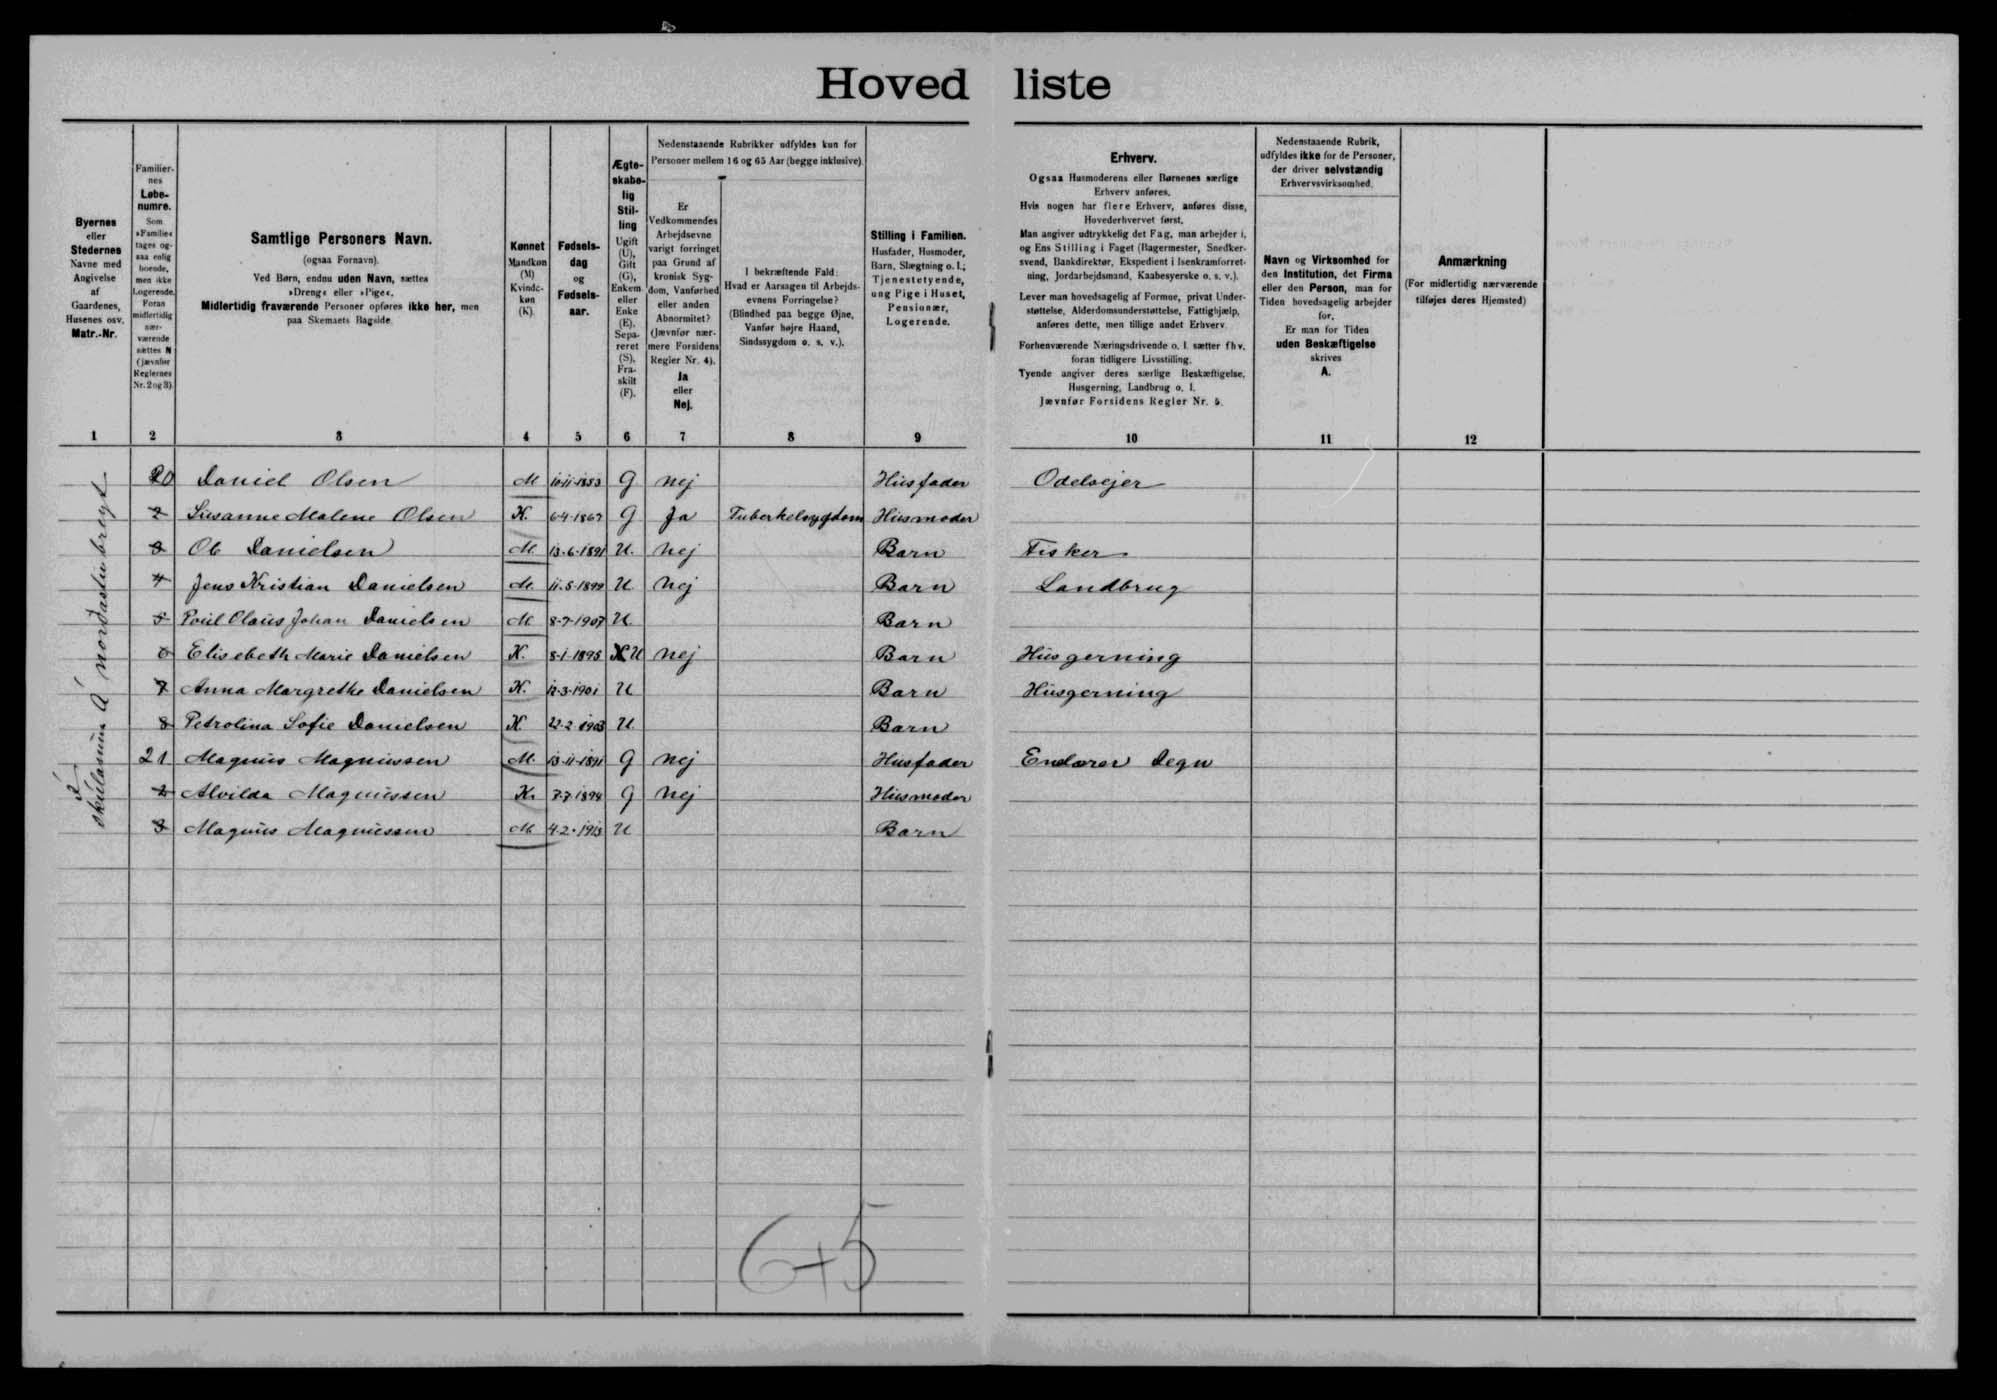 Hovedliste
Byernes
eller
Stedernes
Navne med
Angivelse
af
Gaardenes,
Husenes osv.
Matr.-Nr.
Familier-
nes
Løbe-
numre.
Som
»Familie«
tages og-
saa enlig
boende,
men ikke
Logerende.
Foran
midlertidig
nær-
værende
sættes N
(jævnfør
Reglernes
Nr. 2 og 3).
Samtlige Personers Navn.
(ogsaa Fornavn).
Ved Børn, endnu uden Navn, sættes
»Dreng« eller »Pige«.
Midlertidig fraværende Personer opføres ikke her, men
paa Skemaets Bagside.
Kønnet
Mandkøn
(M)
Kvinde-
køn
(K).
Fødsels-
dag
og
Fødsels-
aar.
Ægte-
skabe-
lig
Stil-
ling
Ugift
(U),
Gift
(G),
Enkem.
eller
Enke
(E),
Sepa-
reret
(S),
Fra-
skilt
(F).
Nedenstaaende Rubrikker udfyldes kun for
Personer mellem 16 og 65 Aar (begge inklusive).
Er
Vedkommendes
Arbejdsevne
varigt forringet
paa Grund af
kronisk Syg-
dom, Vanførhed
eller anden
Abnormitet?
(Jævnfør nær-
mere Forsidens
Regler Nr. 4).
Ja
eller
Nej.
I bekræftende Fald:
Hvad er Aarsagen til Arbejds-
evnens Forringelse?
(Blindhed paa begge Øjne,
Vanfør højre Haand,
Sindssygdom o. s. v.).
Stilling i Familien.
Husfader, Husmoder,
Barn, Slægtning o. l.;
Tjenestetyende,
ung Pige i Huset,
Pensionær,
Logerende.
Erhverv.
Ogsaa Husmoderens eller Børnenes særlige
Erhverv anføres.
Hvis nogen har flere Erhverv, anføres disse,
Hovederhvervet først.
Man angiver udtrykkelig det Fag, man arbejder i,
og Ens Stilling i Faget (Bagermester, Snedker-
svend, Bankdirektør, Ekspedient i Isenkramforret-
ning, Jordarbejdsmand, Kaabesyerske o. s. v.).
Lever man hovedsagelig af Formue, privat Under-
støttelse, Alderdomsunderstøttelse, Fattighjælp,
anføres dette, men tillige andet Erhverv.
Forhenværende Næringsdrivende o. l. sætter fhv.
foran tidligere Livsstilling.
Tyende angiver deres særlige Beskæftigelse,
Husgerning, Landbrug o. l.
Jævnfør Forsidens Regler Nr. 5.
Nedenstaaende Rubrik,
udfyldes ikke for de Personer,
der driver selvstændig
Erhvervsvirksomhed.
Navn og Virksomhed for
den Institution, det Firma
eller den Person, man for
Tiden hovedsagelig arbejder
for.
Er man for Tiden
uden Beskæftigelse
skrives
A.
Anmærkning
(For midlertidig nærværende
tilføjes deres Hjemsted)
1 2 3 4 5 6 7 8 9 10 11 12
20 Daniel Olsen M 10-11-1853 G nej Husfader Odelsejer
2 Susanne Malene Olsen K. 6-4-1867 G Ja Tuberkelsygdom Husmoder
3 Ole Danielsen M. 13-6-1891 U. nej Barn Fisker
4 Jens Kristian Danielsen M. 11-5-1899 U. nej Barn Landbrug
5 Poul Olaus Johan Danielsen M. 8-7-1907 U. Barn
6 Elisebeth Marie Danielsen K. 8-1-1895 U nej Barn Husgerning
7 Anna Margrethe Danielsen K. 12-3-1901 U Barn Husgerning
8 Petrolina Sofie Danielsen K. 22-2-1903 U. Barn
21 Magnus Magnussen M. 13-11-1891 G nej Husfader Enelærer Degn
2 Alvilda Magnussen K. 7-7-1894 G nej Husmoder
3 Magnus Magnussen M 4-2-1913 U Barn
6+5